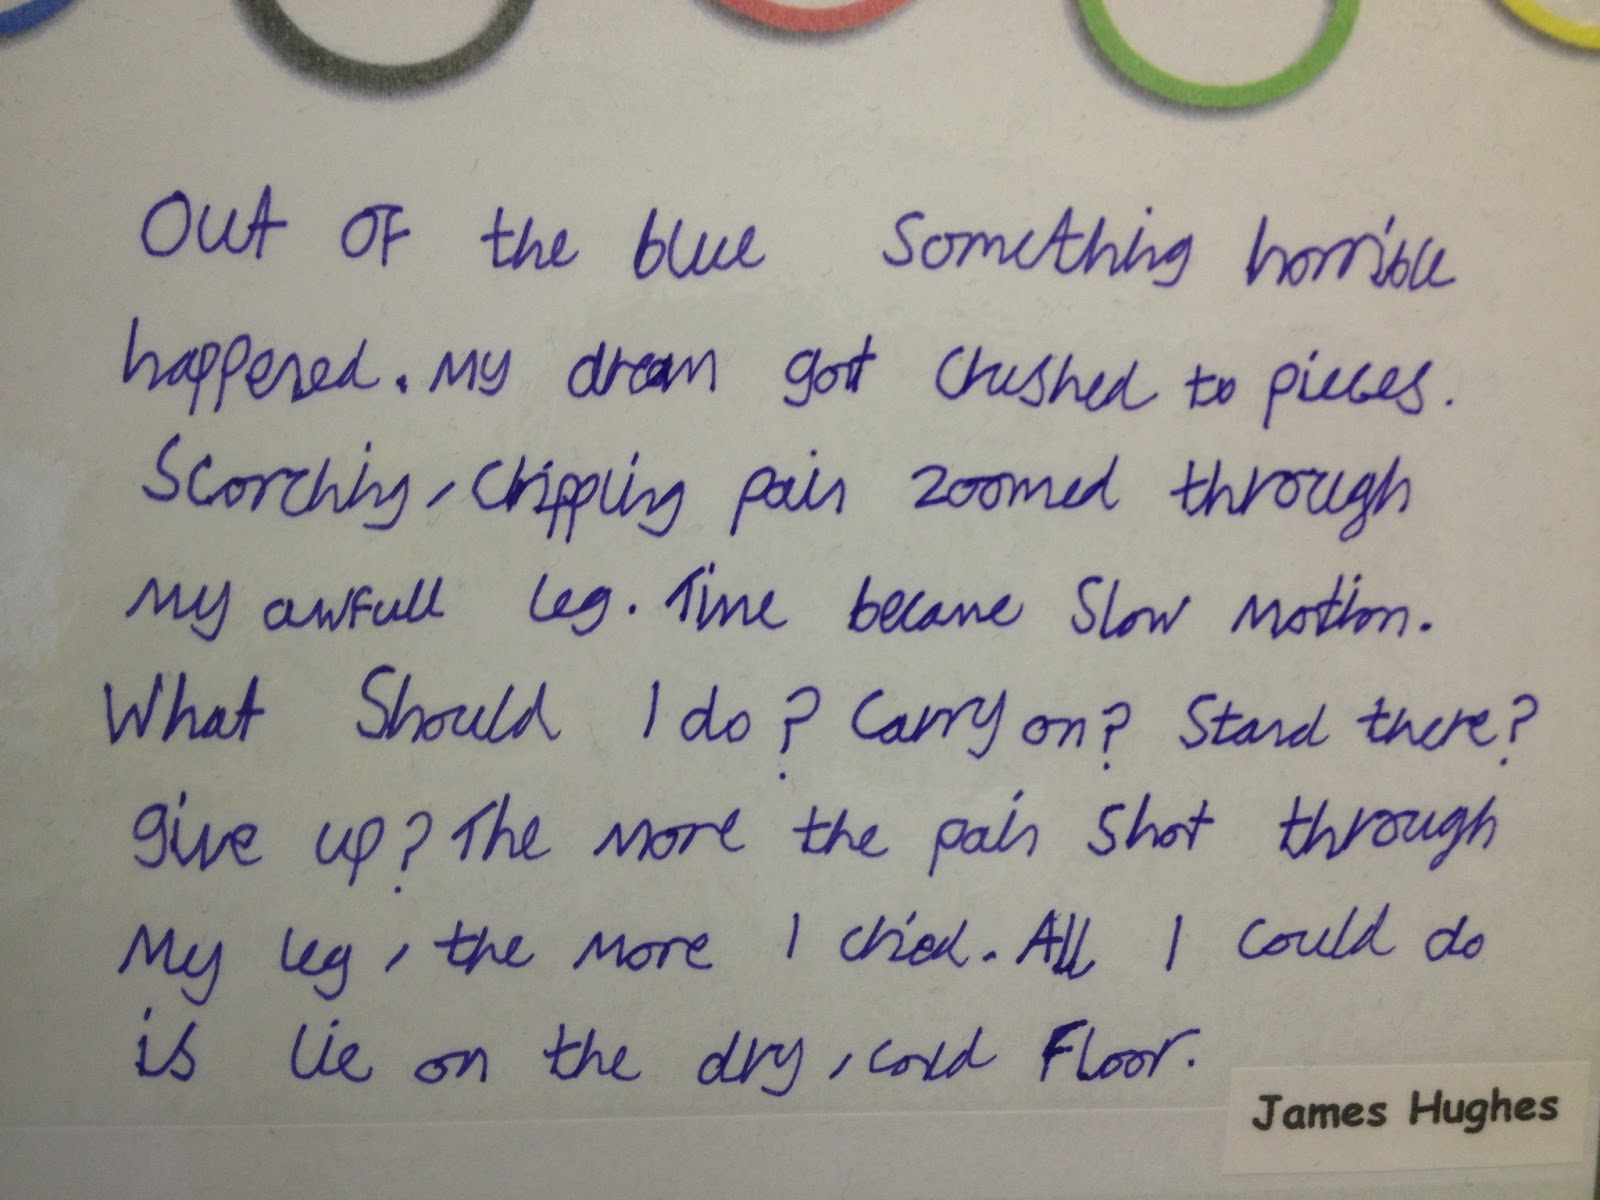 Out of the blue something horrible
happened. My dream got crushed to pieces.
Scorching, crippling pain zoomed through
my awfull leg. Time became slow motion.
What should I do? Carry on? Stand there?
give up? The more the pain shot through
my leg, the more I cried. All I could do
is lie on the dry, cold floor.
James Hughes